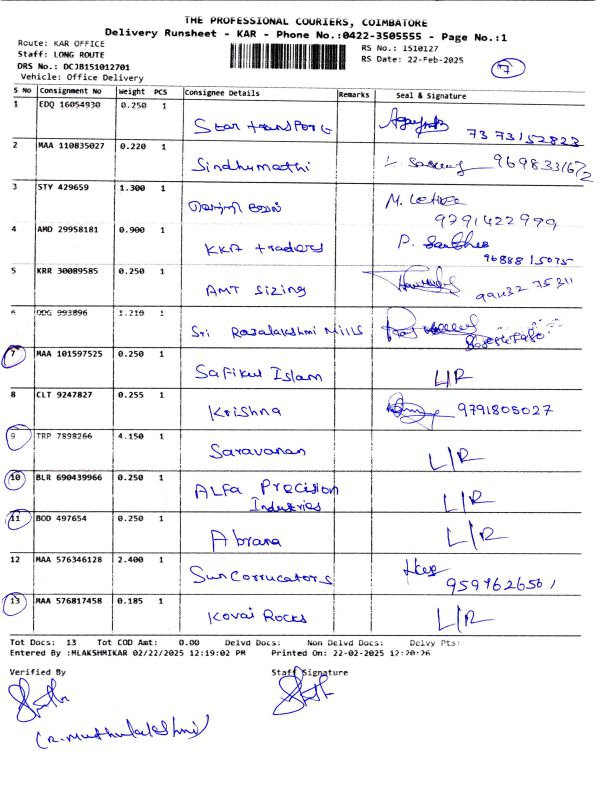 THE PROFESSIONAL COURIERS, COIMBATORE
Delivery Runsheet - KAR - Phone No.:0422-3505555 - Page No.:1
Route: KAR OFFICE RS No.: 1510127
Staff: LONG ROUTE RS Date: 22-Feb-2025
DRS No.: DCJB151012701 7
Vehicle: Office Delivery
S No Consignment No Weight PCS Consignee Details Remarks Seal & Signature
1 EDQ 16054930 0.250 1 Star transPorts 7373152823
2 MAA 110835027 0.220 1 Sindhumathi
3 STY 429659 1.300 1 M. 9791422999
4 AMD 29958181 0.900 1 KKA traders P. 9688815075
5 KRR 30089585 0.250 1 AMT Sizing
6 ODG 993896 1.210 1 Sri Rajalakshmi Mills
7 MAA 101597525 0.250 1 Safikul Islam L/R
8 CLT 9247827 0.255 1 Krishna 9791805027
9 TRP 7898266 4.150 1 Saravanan L/R
10 BLR 690439966 0.250 1 ALFa Precision Industries L/R
11 BOD 497654 0.250 1 Abrana L/R
12 MAA 576346128 2.400 1 Sun Corrucators
13 MAA 576817458 0.185 1 Kovai Rocks L/R
Tot Docs: 13 Tot COD Amt: 0.00 Delvd Docs: Non Delvd Docs: Delvy Pts:
Entered By :MLAKSHMIKAR 02/22/2025 12:19:02 PM Printed On: 22-02-2025 12:20:26
Verified By Staff Signature
(R. Muthulakshmi)